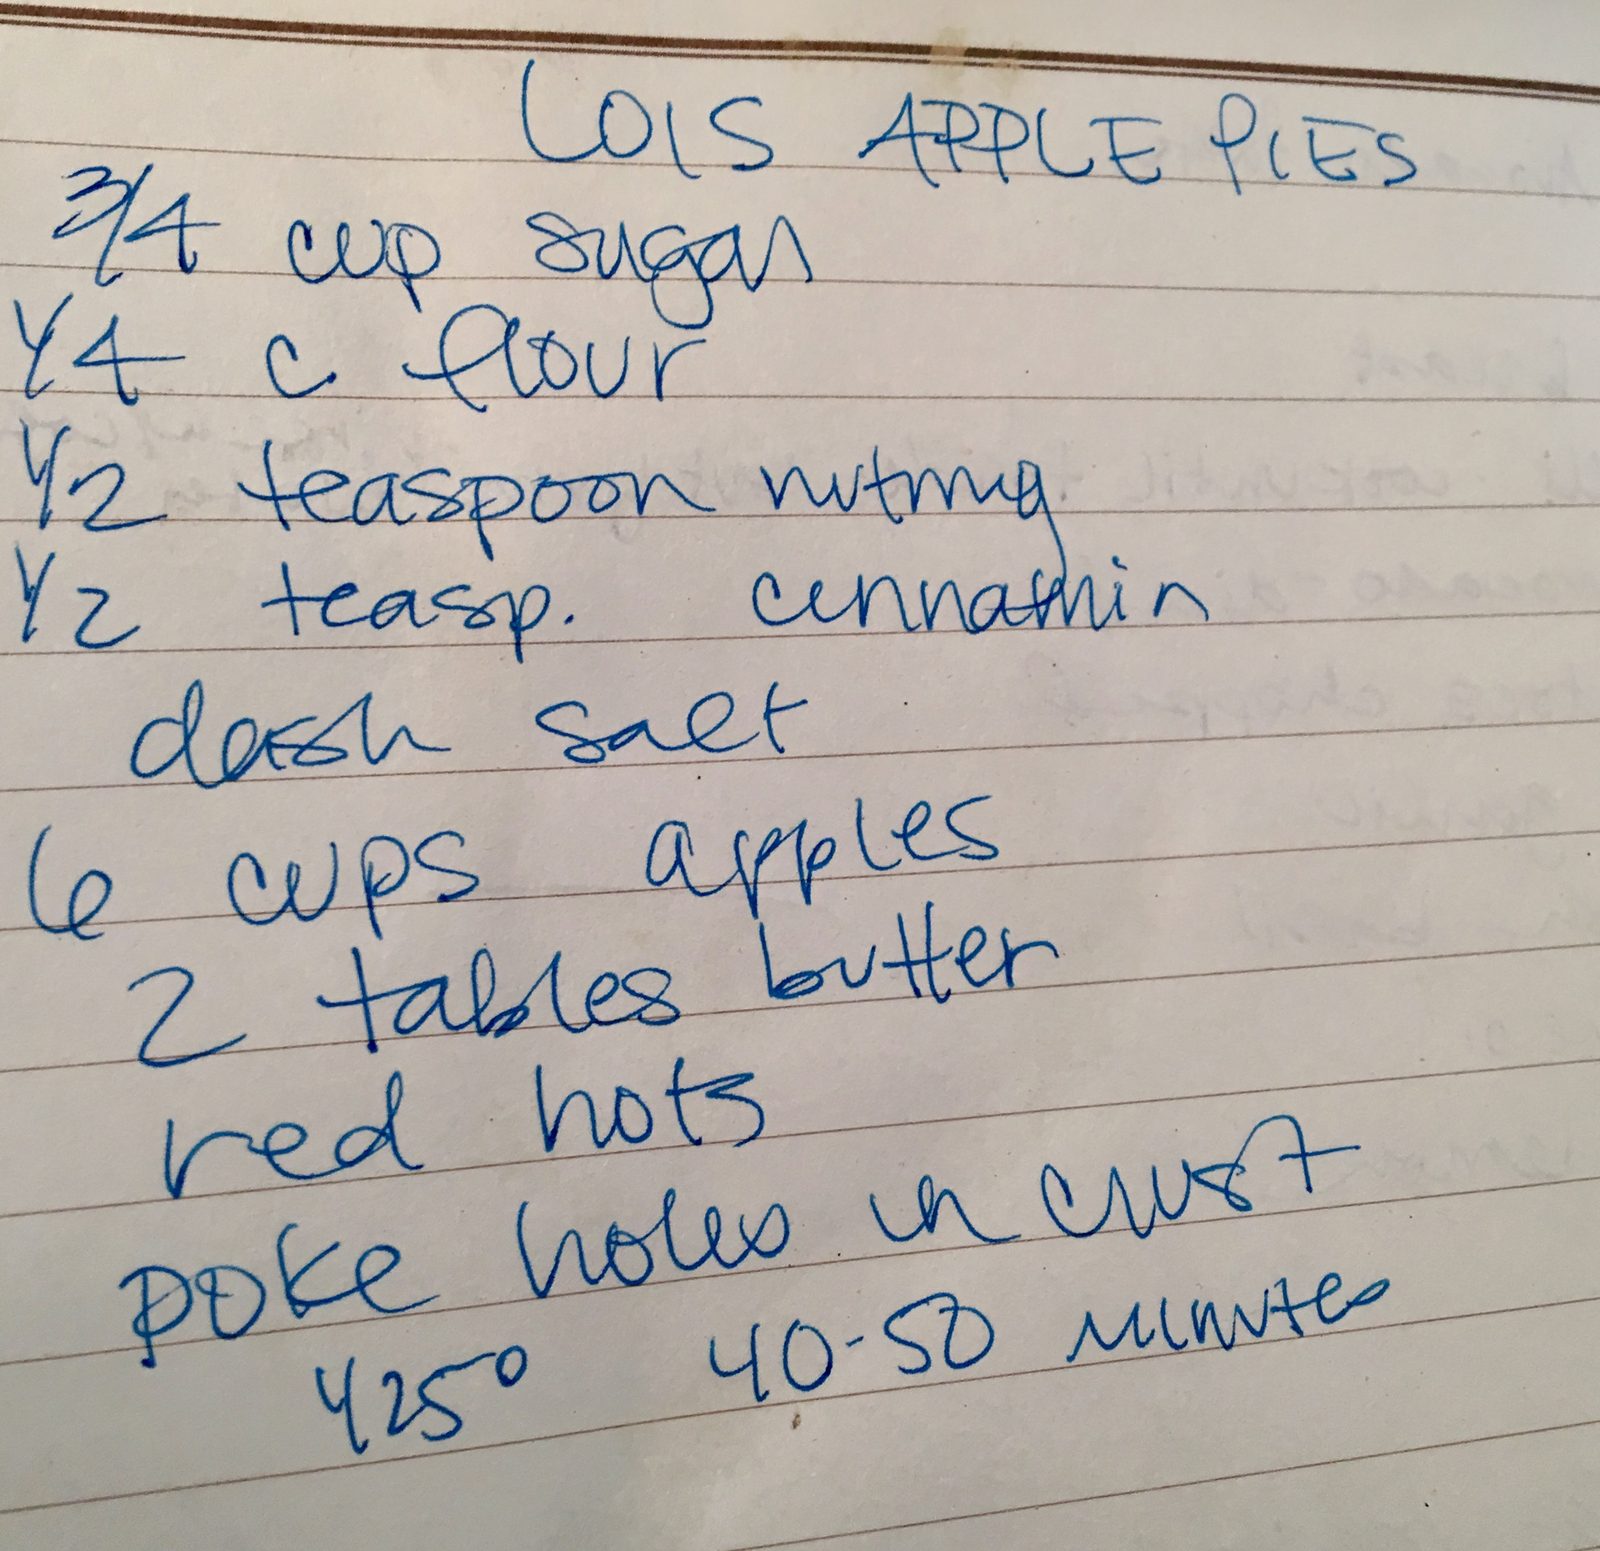 LOIS APPLE PIES
3/4 cup sugar
1/4 c flour
1/2 teaspoon nutmeg
1/2 teasp. cinnamin
dash salt
6 cups apples
2 tables butter
red hots
poke holes in crust
425° 40-50 minutes